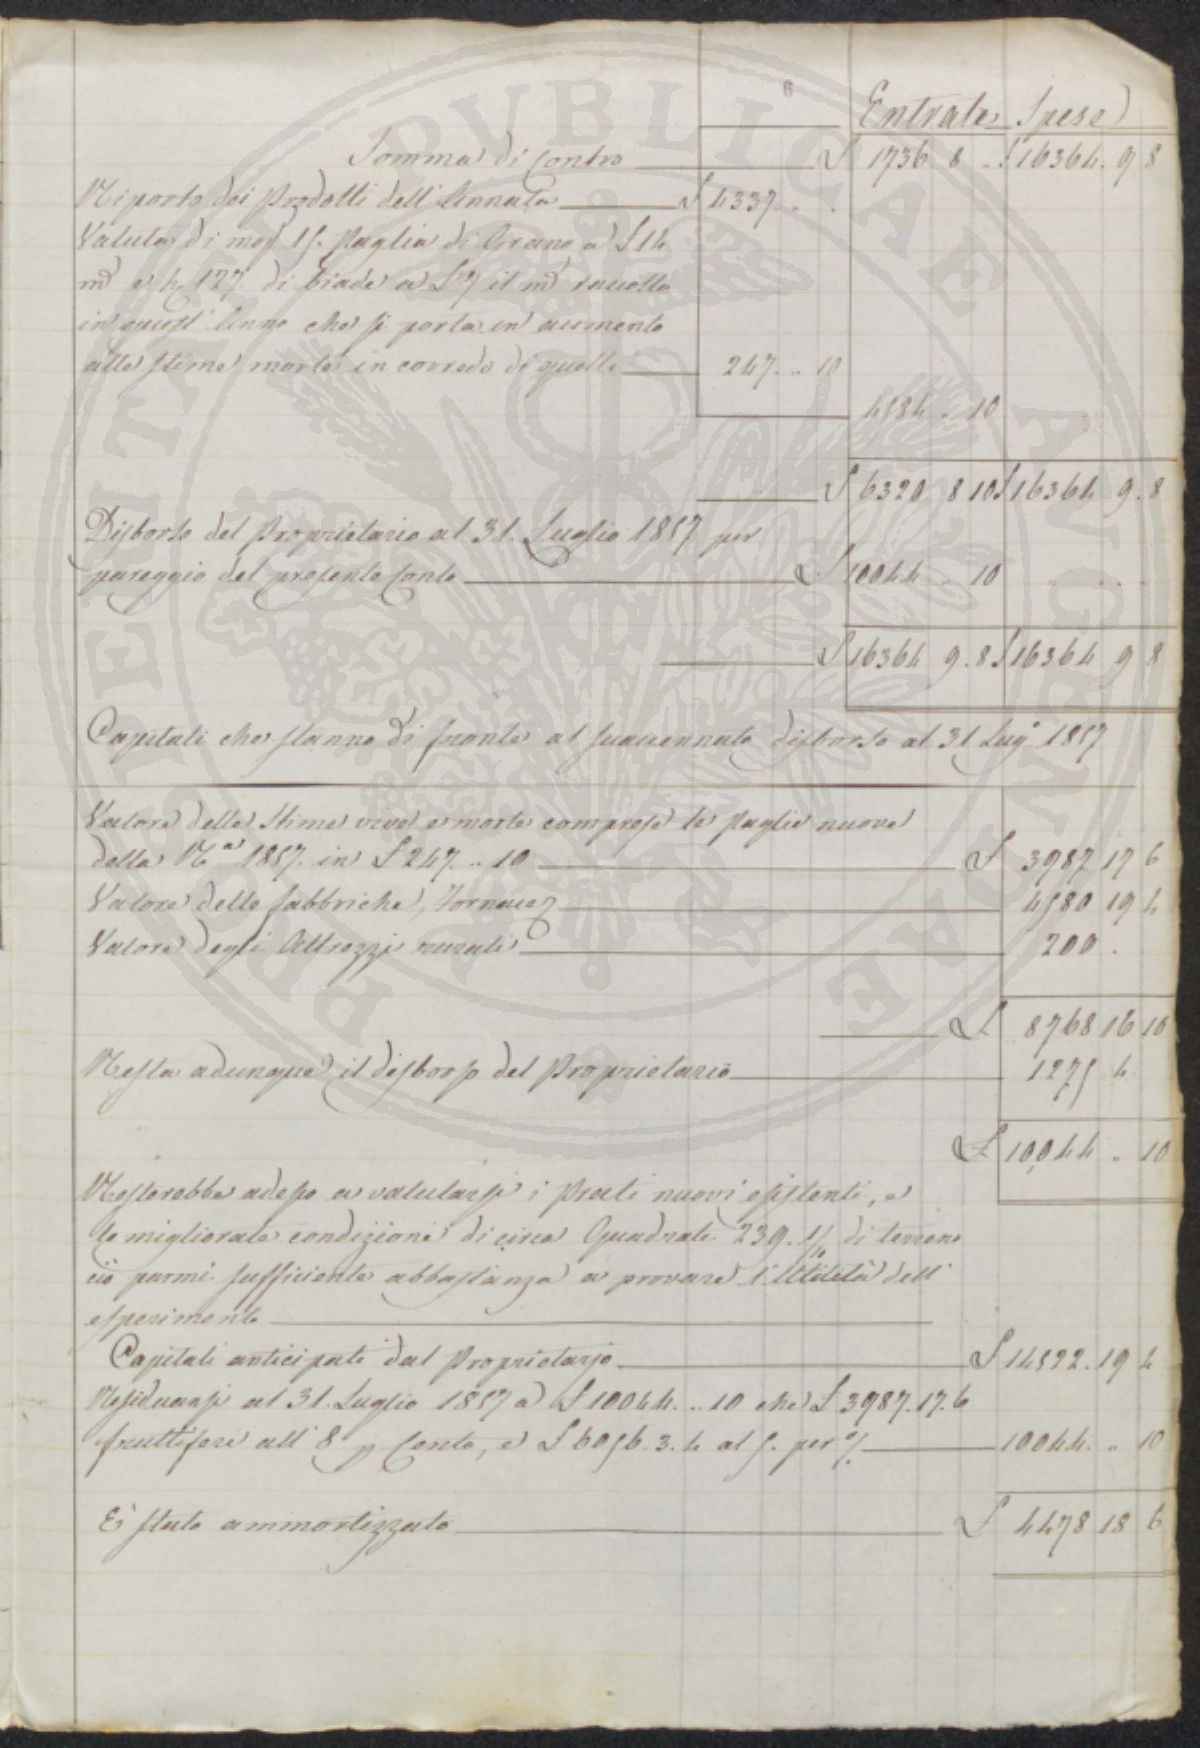 Entrate Spese
Somma di contro £ 1736 8 .. £ 16364. 9 8
Riporto dei Prodotti dell'Annata £ 4337 .. .
Valuta di mog 15. Paglia di Grano a £ 14
md e 127. di biade a £ 7 il md raccolta
in quest'Anno che si porta in aumento
alle stime morte in corredo di quelle 247 .. 10
4584 .. 10
£ 6320 8 10 £ 16364 9. 8
Disborso del Proprietario al 31. Luglio 1857 per
pareggio del presente Conto £ 10044 .. 10
£ 16364 9. 8 £ 16364 9 8
Capitali che stanno di fronte al suaccennato disborso al 31 Lug.o 1857
Valore delle Stime vive e morte comprese le paglie nuove
della R.a 1857. in £ 247. .. 10 £ 3987 17 6
Valore delle fabbriche, Fornace 4580 19 4
Valore degli Attrezzi rurali 200 .
£ 8768 16 10
Resta adunque il disborso del Proprietario 1275 4
£ 10,044 .. 10
Resterebbe adesso a valutarsi i Prati nuovi esistenti, e
le migliorate condizione di circa Quadrate 239. 1/4 di terreno
ciò parmi sufficiente abbastanza a provare l'Utilità dell'
esperimento
Capitali anticipati dal Proprietario £ 14522. 19 4
Residuansi al 31. Luglio 1857 a £ 10044. .. 10 che £ 3987. 17. 6
fruttiferi all'8 p Conto, e £ 6056. 3. 4 al 5. per % 10044. .. 10
È stato ammortizzato £ 4478 18 6
PUBLICAE AVGENDAE